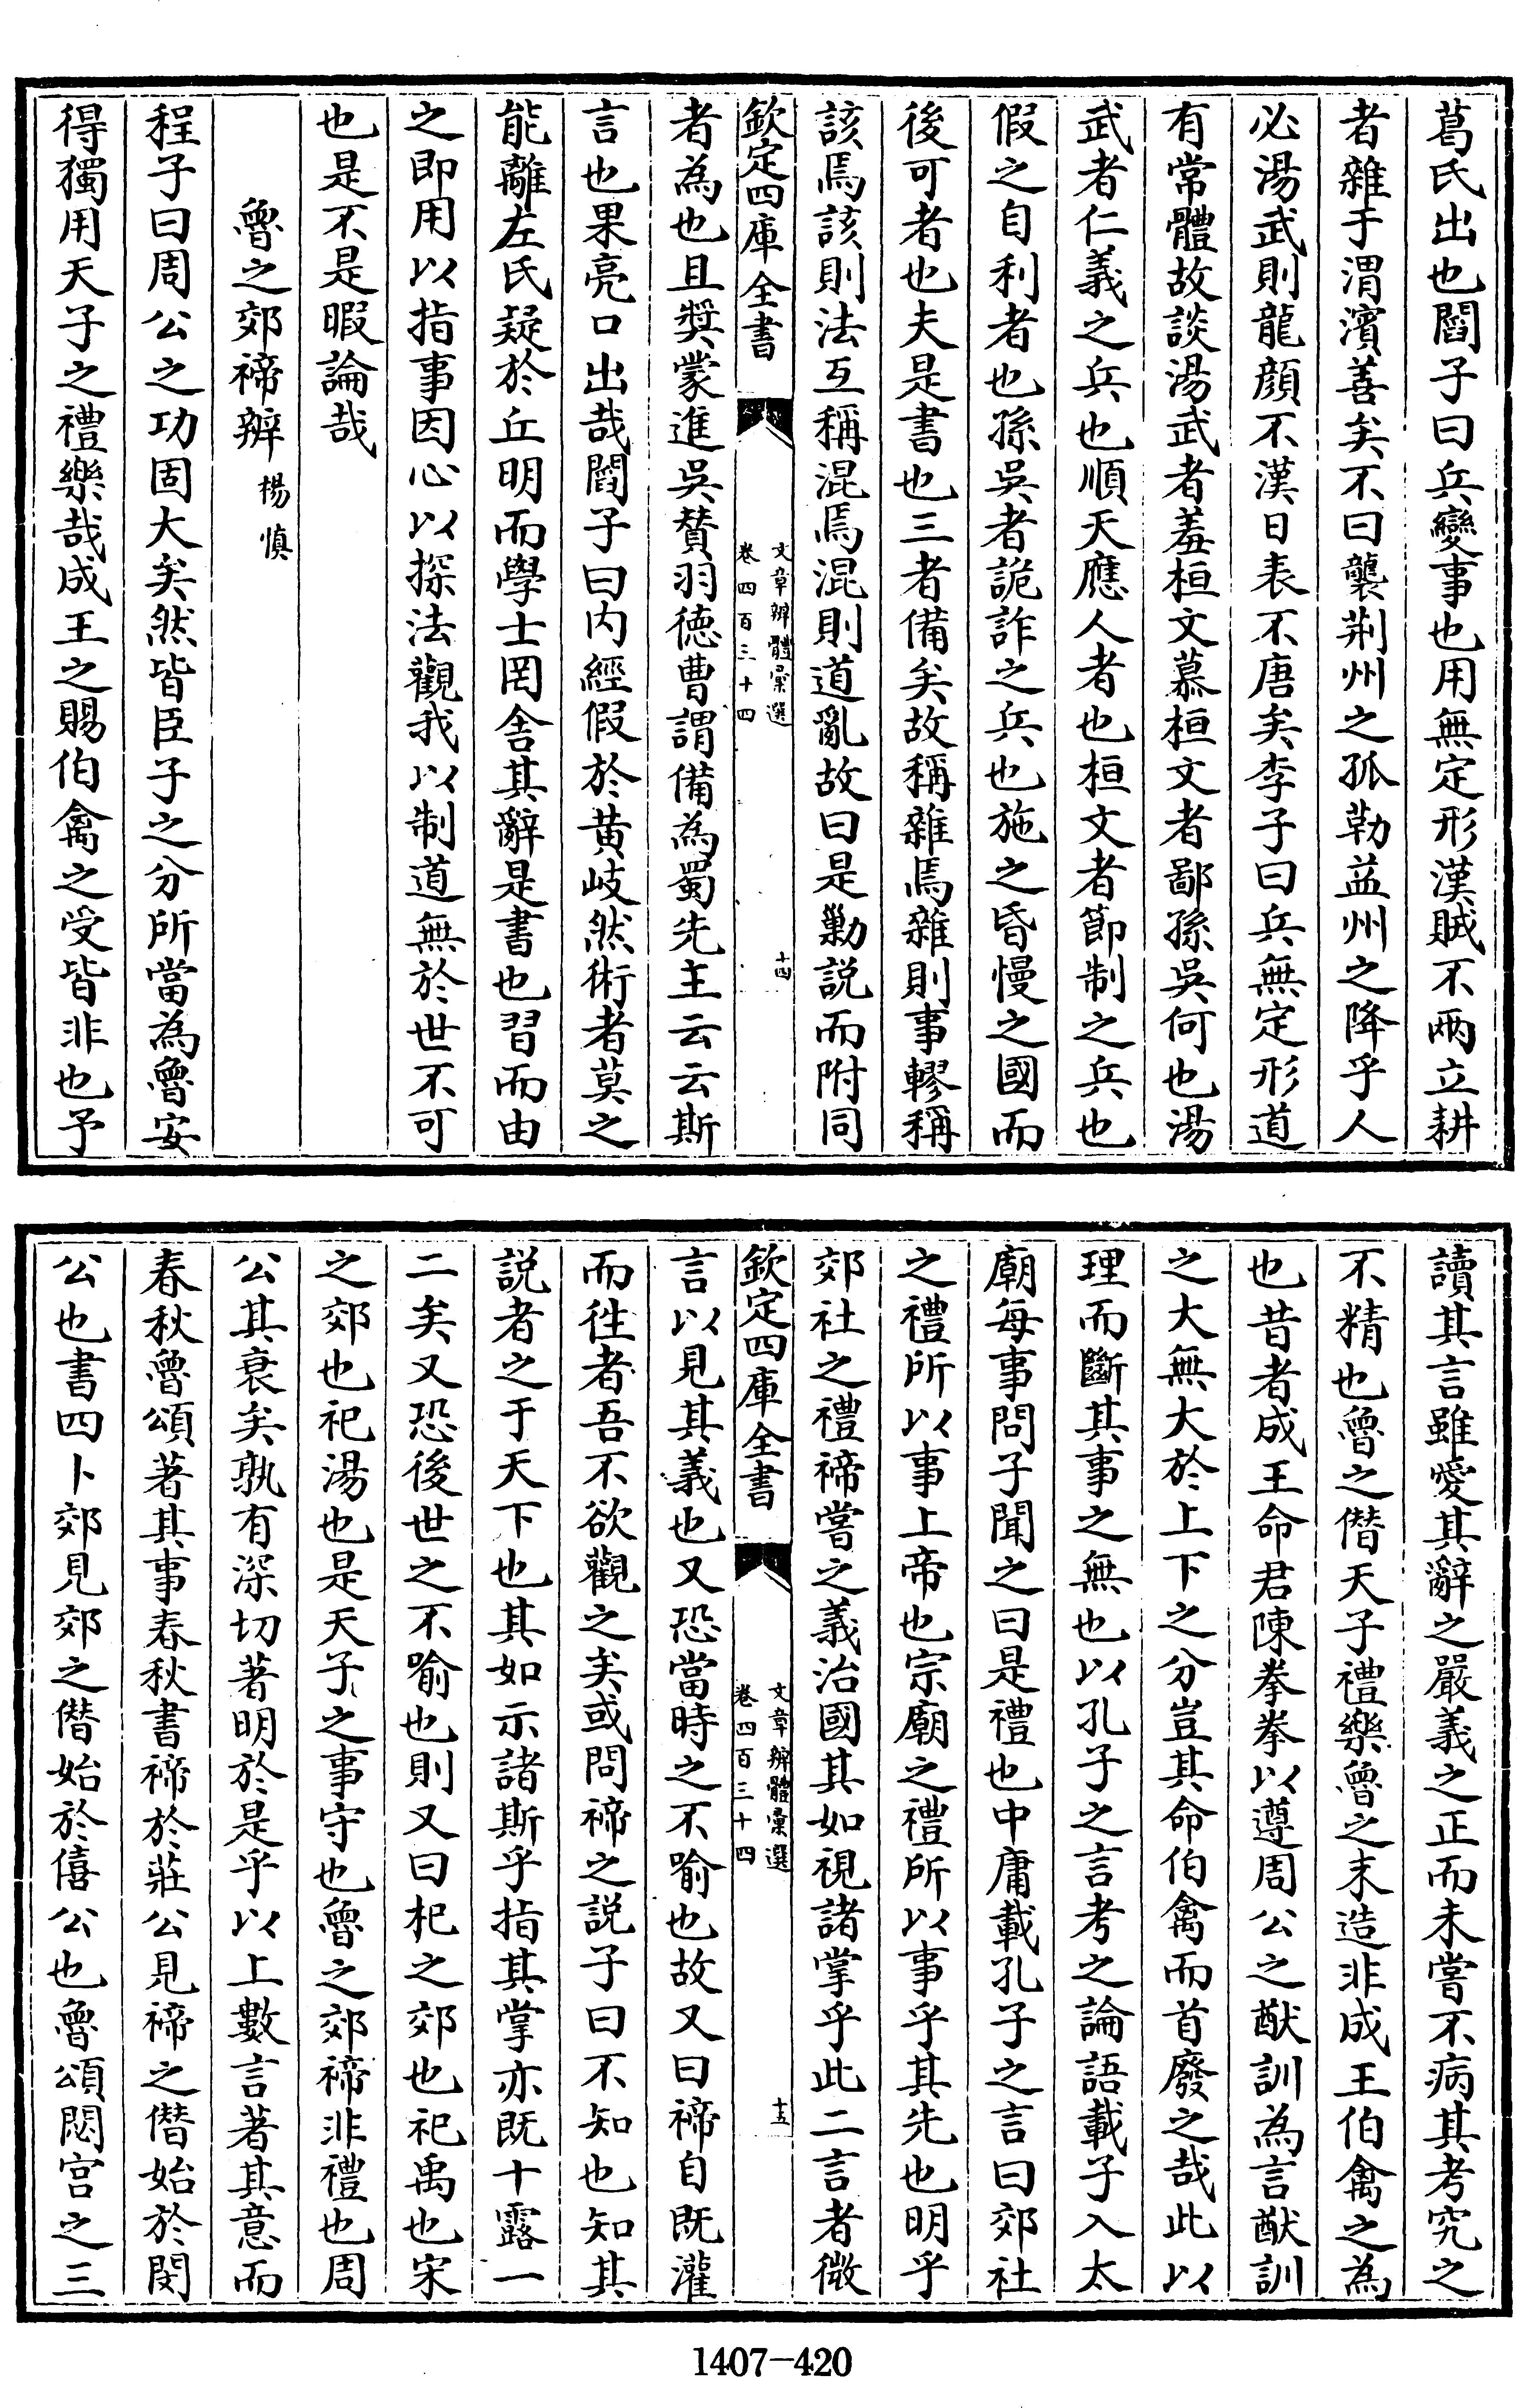 葛氏出也閻子曰兵變事也用無定形漢賊不兩立耕
者雜于渭濱善矣不曰襲荆州之孤勒益州之降乎人
必湯武則龍顔不漢日表不唐矣李子曰兵無定形道
有常體故談湯武者羞桓文慕桓文者鄙孫吳何也湯
武者仁義之兵也順天應人者也桓文者節制之兵也
假之自利者也孫吳者詭詐之兵也施之昏慢之國而
後可者也夫是書也三者備矣故稱雜焉雜則事轇稱
該焉該則法互稱混焉混則道亂故曰是勦説而附同
欽定四庫全書
文章辨體彙選
卷四百三十四
十四
者為也且奬蒙進吳賛羽德曹謂備為蜀先主云云斯
言也果亮口出哉閻子曰内經假於黄岐然術者莫之
能離左氏疑於丘明而學士罔舍其辭是書也習而由
之即用以指事因心以探法觀我以制道無於世不可
也是不是暇論哉
魯之郊禘辨 楊慎
程子曰周公之功固大矣然皆臣子之分所當為魯安
得獨用天子之禮樂哉成王之賜伯禽之受皆非也予
讀其言雖愛其辭之嚴義之正而未嘗不病其考究之
不精也魯之僭天子禮樂魯之末造非成王伯禽之為
也昔者成王命君陳拳拳以遵周公之猷訓為言猷訓
之大無大於上下之分豈其命伯禽而首廢之哉此以
理而斷其事之無也以孔子之言考之論語載子入太
廟每事問子聞之曰是禮也中庸載孔子之言曰郊社
之禮所以事上帝也宗廟之禮所以事乎其先也明乎
郊社之禮禘嘗之義治國其如視諸掌乎此二言者微
欽定四庫全書
文章辨體彙選
卷四百三十四
十五
言以見其義也又恐當時之不喻也故又曰禘自既灌
而徃者吾不欲觀之矣或問禘之説子曰不知也知其
説者之于天下也其如示諸斯乎指其掌亦既十露一
二矣又恐後世之不喻也則又曰杞之郊也祀禹也宋
之郊也祀湯也是天子之事守也魯之郊禘非禮也周
公其衰矣孰有深切著明於是乎以上數言著其意而
春秋魯頌著其事春秋書禘於莊公見禘之僭始於閔
公也書四卜郊見郊之僭始於僖公也魯頌閟宫之三
1407-420